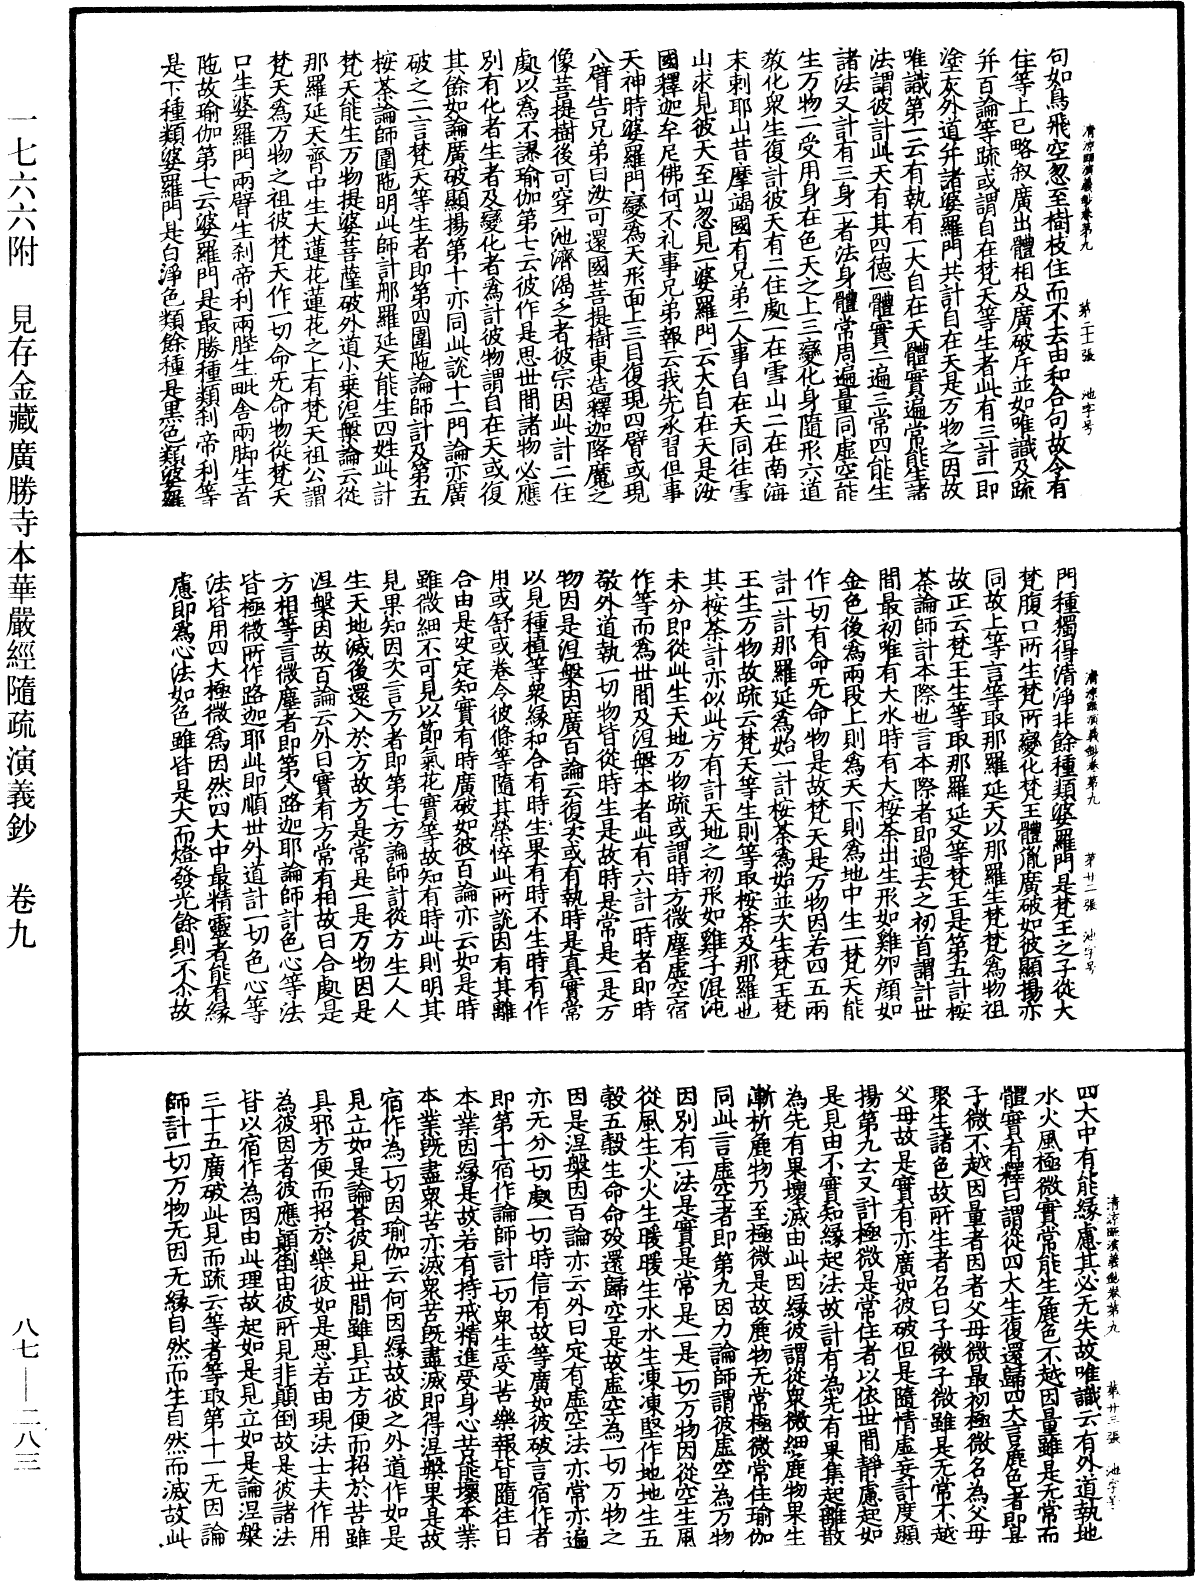 一七六六附　見存金藏廣勝寺本華嚴經隨疏演義鈔　卷九
八七——二八三
清涼疏演義鈔卷第九　第二十一張　池字号
句如鳥飛空忽至樹枝住而不去由和合句故令有
住等上已略叙廣出體相及廣破斥並如唯識及疏
并百論等疏或謂自在梵天等生者此有三計一即
塗灰外道并諸婆羅門共計自在天是万物之因故
唯識第一云有執有一大自在天體實遍常能生諸
法謂彼計此天有其四德一體實二遍三常四能生
諸法又計有三身一者法身體常周遍量同虛空能
生万物二受用身在色天之上三變化身隨形六道
教化衆生復計彼天有二住處一在雪山二在南海
末剌耶山昔摩竭國有兄弟二人事自在天同往雪
山求見彼天至山忽見一婆羅門云大自在天是汝
國釋迦牟尼佛何不礼事兄弟報云我先承習但事
天神時婆羅門變為天形面上三目復現四臂或現
八臂告兄弟曰汝可還國菩提樹東造釋迦降魔之
像菩提樹後可穿一池濟渴乏者彼宗因此計二住
處以為不謬瑜伽第七云彼作是思世間諸物必應
別有化者生者及變化者為計彼物謂自在天或復
其餘如論廣破顯揚第十亦同此說十二門論亦廣
破之二言梵天等生者即第四圍陁論師計及第五
桉荼論師圍陁明此師計那羅延天能生四姓此計
梵天能生万物提婆菩薩破外道小乗涅槃論云從
那羅延天臍中生大蓮花蓮花之上有梵天祖公謂
梵天為万物之祖彼梵天作一切命无命物從梵天
口生婆羅門兩臂生刹帝利兩髀生毗舍兩脚生首
陁故瑜伽第七云婆羅門是最勝種類刹帝利等
是下種類婆羅門是白淨色類餘種是黒色類婆羅
清涼疏演義鈔卷第九　第廿二張　池字号
門種獨得清淨非餘種類婆羅門是梵王之子從大
梵腹口所生梵所變化梵王體胤廣破如彼顯揚亦
同故上等言等取那羅延天以那羅生梵梵為物祖
故正云梵王生等取那羅延又等梵王是第五計桉
荼論師計本際也言本際者即過去之初首謂計世
間最初唯有大水時有大桉荼出生形如雞卵顔如
金色後為兩段上則為天下則為地中生一梵天能
作一切有命无命物是故梵天是万物因若四五兩
計一計那羅延為始一計桉荼為始並次生梵王梵
王生万物故疏云梵天等生則等取桉荼及那羅也
其桉荼計亦似此方有計天地之初形如雞子混沌
未分即從此生天地万物疏或謂時方微塵虛空宿
作等而為世間及涅槃本者此有六計一時者即時
散外道執一切物皆從時生是故時是常是一是万
物因是涅槃因廣百論云復次或有執時是真實常
以見種植等衆緣和合有時生果有時不生時有作
用或舒或卷令彼條等隨其榮悴此所說因有其離
合由是決定知實有時廣破如彼百論亦云如是時
雖微細不可見以節氣花實等故知有時此則明其
見果知因次言方者即第七方論師計從方生人人
生天地滅後還入於方故方是常是一是万物因是
涅槃因故百論云外曰實有方常有相故曰合處是
方相等言微塵者即第八路迦耶論師計色心等法
皆極微所作路迦耶此即順世外道計一切色心等
法皆用四大極微為因然四大中最精靈者能有緣
慮即為心法如色雖皆是大而燈發光餘則不尒故
清涼疏演義鈔卷第九　第廿三張　池字号
四大中有能緣慮其必无失故唯識云有外道執地
水火風極微實常能生麁色不越因量雖是无常而
體實有釋曰謂從四大生復還歸四大言麁色者即是
子微不越因量者因者父母微最初極微名為父母
聚生諸色故所生者名曰子微子微雖是无常不越
父母故是實有亦廣如彼破但是隨情虛妄計度顯
揚第九云又計極微是常住者以依世間靜慮起如
是見由不實知緣起法故計有為先有果集起離散
為先有果壞滅由此因緣彼謂從衆微細麁物果生
漸析麁物乃至極微是故麁物无常極微常住瑜伽
同此言虛空者即第九因力論師謂彼虛空為万物
因別有一法是實是常是一是一切万物因從空生風
從風生火火生暖暖生水水生凍凍堅作地地生五
穀五穀生命命歿還歸空是故虛空為一切万物之
因是涅槃因百論亦云外曰定有虛空法亦常亦遍
亦无分一切處一切時信有故等廣如彼破言宿作者
即第十宿作論師計一切衆生受苦樂報皆隨往日
本業因緣是故若有持戒精進受身心苦能壞本業
本業既盡衆苦亦滅衆苦既盡滅即得涅槃果是故
宿作為一切因瑜伽云何因緣故彼之外道作如是
見立如是論荅彼見世間雖具正方便而招於苦雖
具邪方便而招於樂彼如是思若由現法士夫作用
為彼因者彼應顛倒由彼所見非顛倒故是彼諸法
皆以宿作為因由此理故起如是見立如是論涅槃
三十五廣破此見而疏云等者等取第十一无因論
師計一切万物无因无緣自然而生自然而滅故此